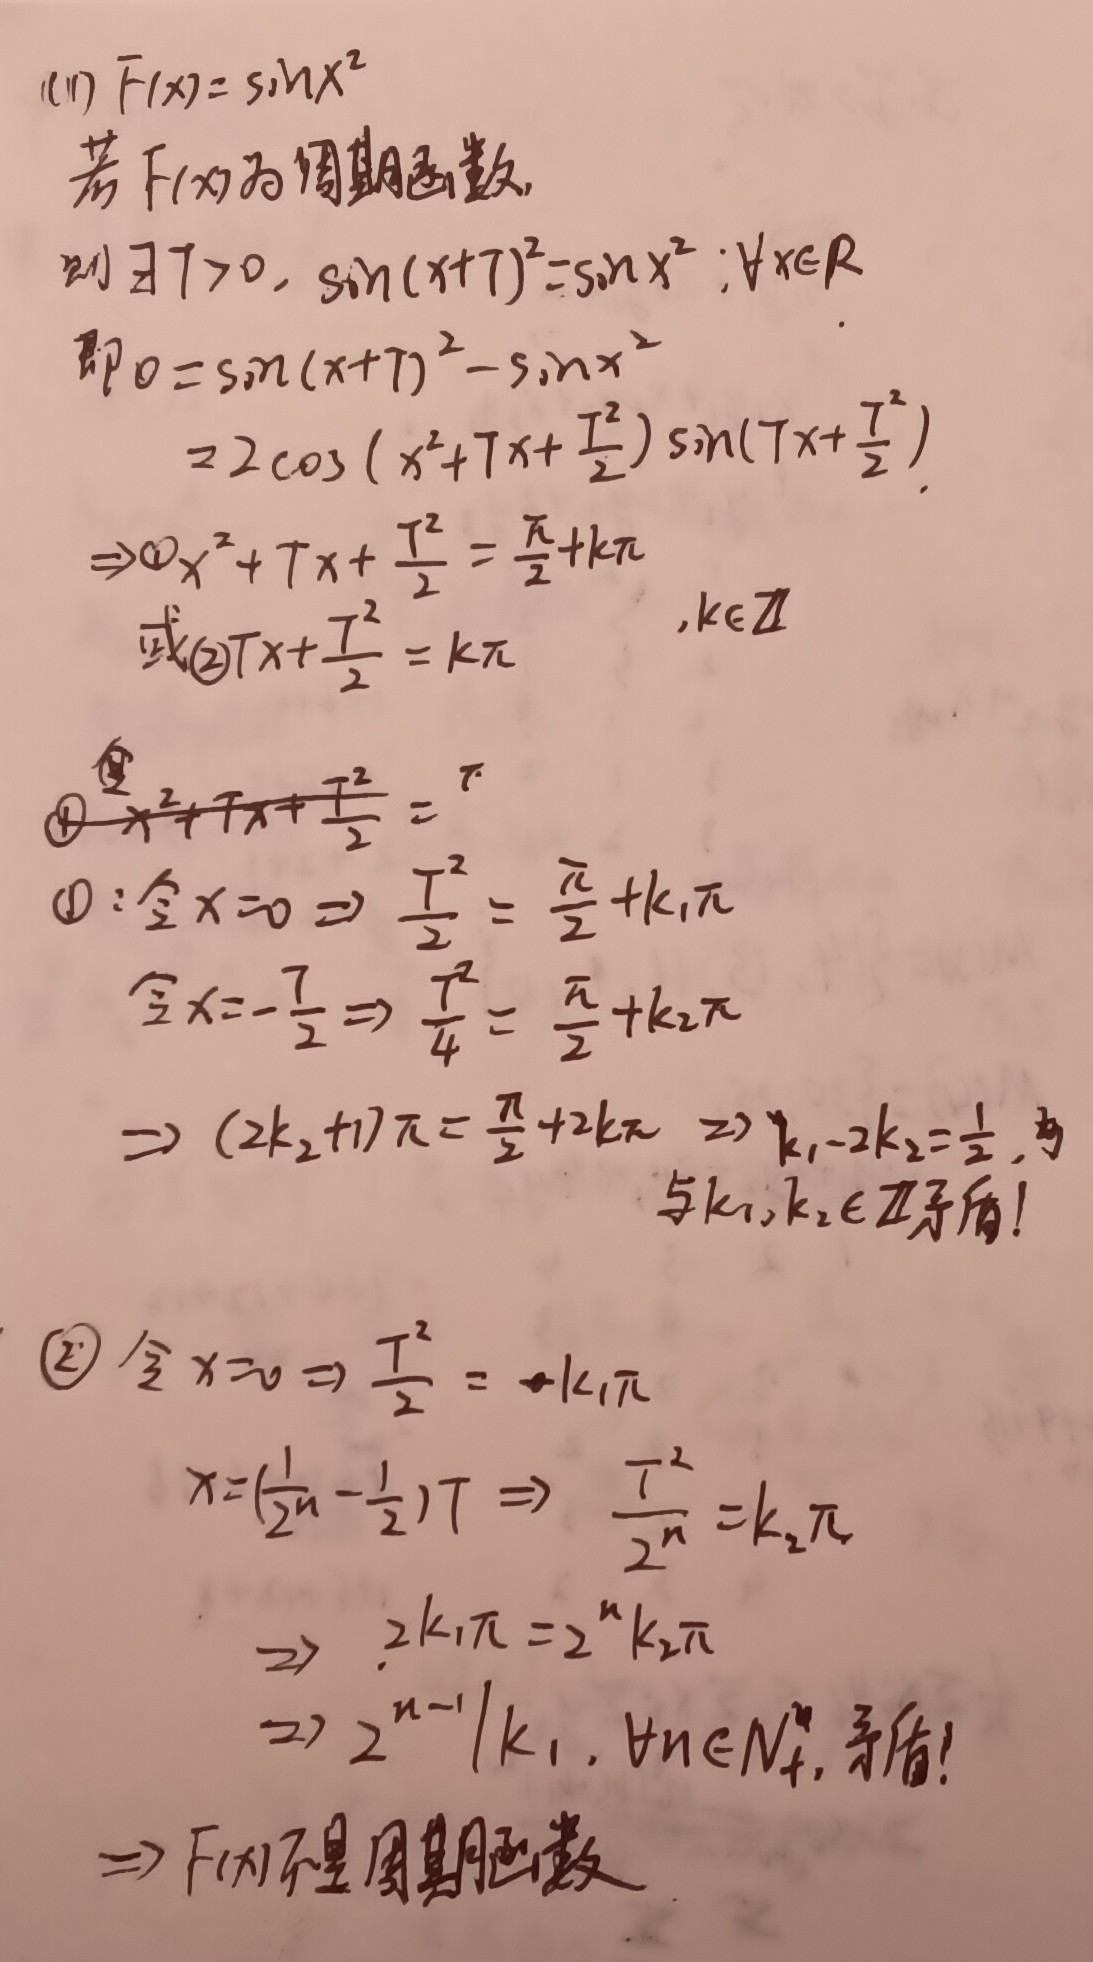 (1) F(x)=sinx²
若F(x)为周期函数,
则∃T>0, sin(x+T)²=sinx²,∀x∈R.
即0=sin(x+T)²-sinx²
=2cos(x²+Tx+T²/2)sin(Tx+T²/2).
⇒①x²+Tx+T²/2=π/2+kπ
,k∈Z
或②Tx+T²/2=kπ
① x²+Tx+T²/2=
①:令x=0⇒T²/2=π/2+k₁π
令x=-T/2⇒T²/4=π/2+k₂π
⇒(2k₂+1)π=π/2+2kπ⇒k₁-2k₂=1/2,
与k₁,k₂∈Z矛盾!
②令x=0⇒T²/2=k₁π
x=(1/2ⁿ-1/2)T⇒T²/2ⁿ=k₂π
⇒2k₁π=2ⁿk₂π
⇒2ⁿ⁻¹/k₁,∀n∈N₊,矛盾!
⇒F(x)不是周期函数